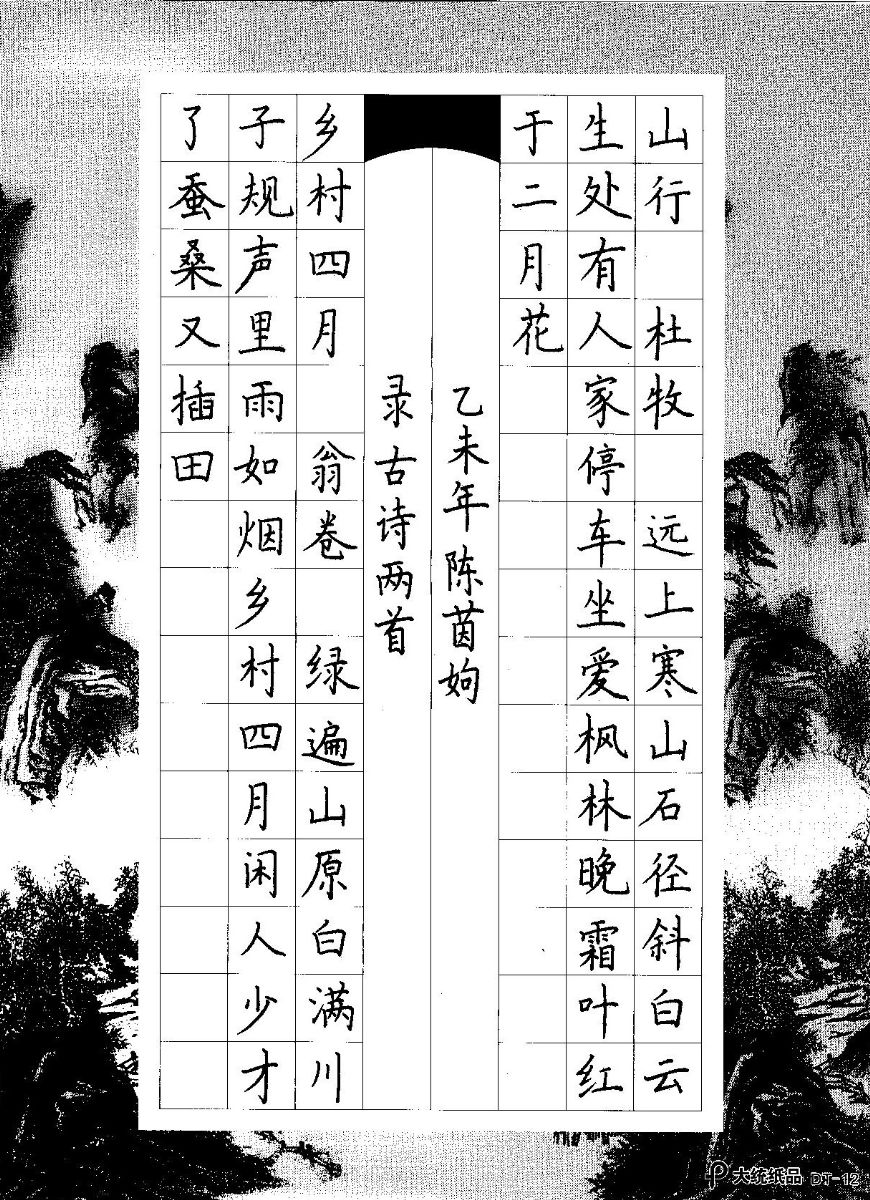 山行 杜牧 远上寒山石径斜白云
生处有人家停车坐爱枫林晚霜叶红
于二月花
乙未年陈茵姁
录古诗两首
乡村四月 翁卷 绿遍山原白满川
子规声里雨如烟乡村四月闲人少才
了蚕桑又插田
大统纸品 DT-12